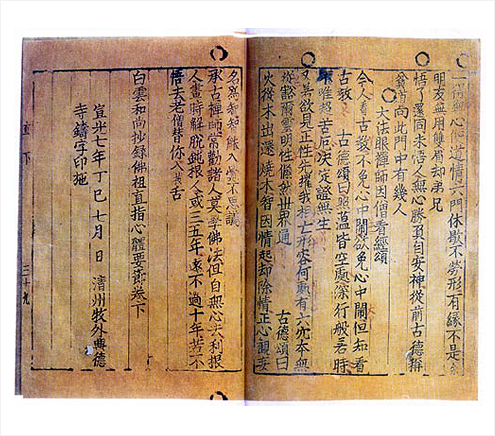 一得無心便道情六門休歇不勞形有緣不是
明友無用雙眉却弟兄
悟了還同未悟人無心勝負自安神從前古德稱
貧道向此門中有幾人
大法眼禪師因僧看經頌
今人看古教不免心中鬧欲免心中鬧但知看
古教 古德頌曰五蘊皆空處深行般若時
唯超苦厄決定證無生
欲見正性先推我相亡形容何處有上下本無
明性儼然世界通 古德頌曰
火從木出還燒木智因情起却除情正心觀妄
名爲知智能入毫不思議
承古禪師常勸諸人莫學佛法但自無心去利根
人晝時解脫鈍根人或三五年遠不過十年若不
悟去老僧替你入舌
白雲和尚抄錄佛祖直指心體要節卷下
宣光七年丁巳七月 日 清州牧外興德
寺鑄字印施
直下 三十九